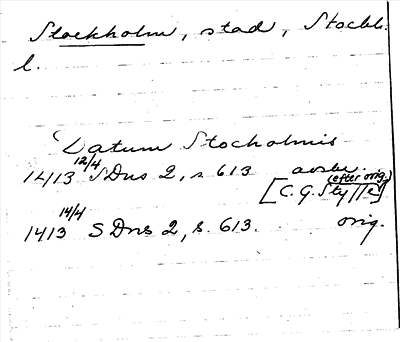 Stockholm, stad, Stockh.
l.
Datum Stocholmis
1413 12/4 SDns 2, s 613 avskr.
(efter orig.)
[C. G. Styffe]
1413 14/4 SDns 2, s. 613. orig.